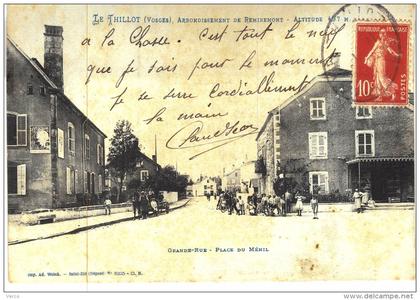 LE THILLOT (VOSGES), ARRONDISSEMENT DE REMIREMONT - ALTITUDE 497 M
REPUBLIQUE FRANÇAISE
10c
POSTES
à la Chasse. C'est tout le neuf
que je sais pour le moment
je te serre cordialement
la main
GRANDE-RUE - PLACE DU MÉNIL
Imp. Ad. Weick. - Saint-Dié
delcampe.net